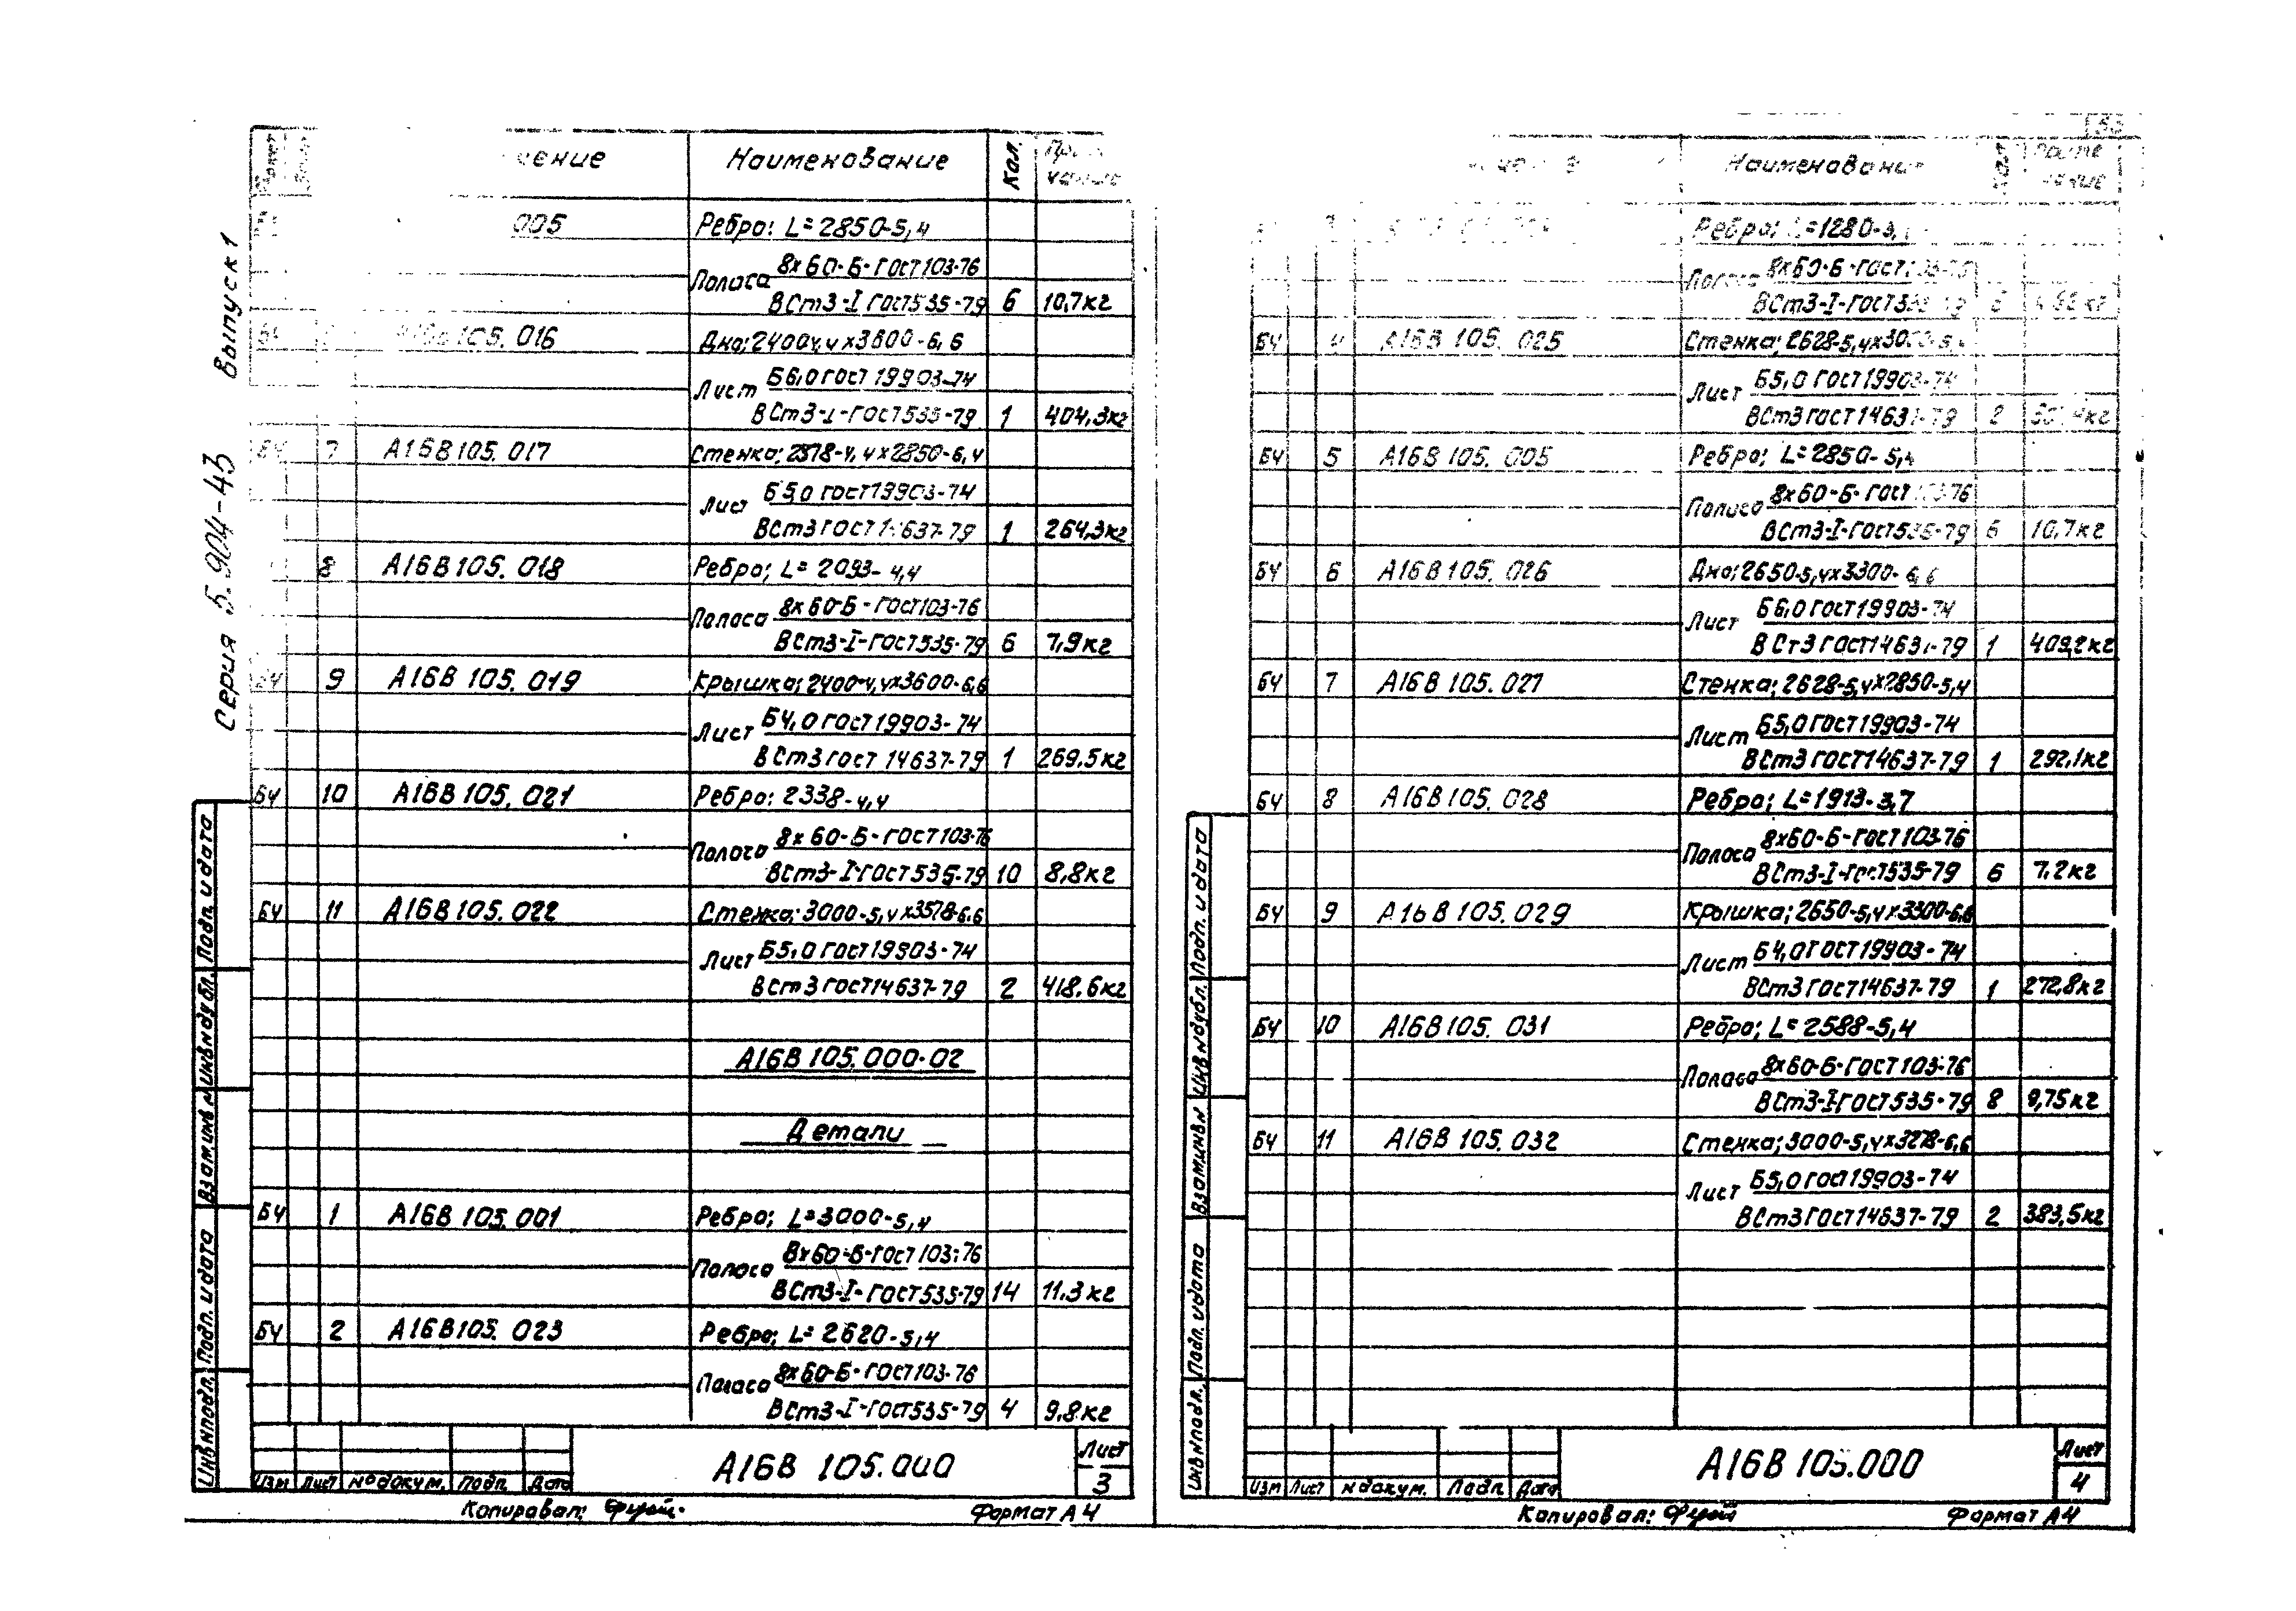 Серия 5.904-43 Выпуск 1
Наименование Кол.
005 Ребро: L=2850-5,4
Полоса 8х60-Б-ГОСТ103-76
ВСт3-I ГОСТ535-79 6 10,7кг
016 Дно; 2400-4,4х3600-6,6
Лист Б6,0 ГОСТ 19903-74
ВСт3-I-ГОСТ535-79 1 404,3кг
БЧ 7 А16В105.017 Стенка; 2378-4,4х2850-6,4
Лист Б5,0 ГОСТ19903-74
ВСт3 ГОСТ14637-79 1 264,3кг
8 А16В105.018 Ребро; L=2093-4,4
Полоса 8х60-Б-ГОСТ103-76
ВСт3-I-ГОСТ535-79 6 7,9кг
БЧ 9 А16В 105.019 Крышка; 2400-4,4х3600-6,6
Лист Б4,0 ГОСТ19903-74
ВСт3 ГОСТ 14637-79 1 269,5кг
БЧ 10 А16В 105.021 Ребро: 2338-4,4
Полоса 8х60-Б-ГОСТ103-76
ВСт3-I-ГОСТ535-79 10 8,8кг
БЧ 11 А16В105.022 Стенка; 3000-5,4х3578-6.6
Лист Б5,0 ГОСТ19903-74
ВСт3 ГОСТ14637-79 2 418.6кг
А16В 105.000-02
Детали
БЧ 1 А16В 105.001 Ребро; L=3000-5,4
Полоса 8х60-Б-ГОСТ103-76
ВСт3-I-ГОСТ535-79 14 11.3кг
БЧ 2 А16В105.023 Ребро; L=2620-5,4
Полоса 8х60-Б-ГОСТ103-76
ВСт3-I-ГОСТ535-79 4 9,8кг
Инв.№подл. Подп. и дата Взам.инв.№ Инв.№дубл. Подп. и дата
Изм Лист №докум. Подп. Дата
А16В 105.000
Лист
3
Копировал:
Формат А4
Наименование
Ребро; L=1280-3,
Полоса 8х60-Б-ГОСТ
ВСт3-I-ГОСТ
БЧ 4 А16В 105.025 Стенка; 2628-5,4х
Лист Б5,0 ГОСТ19903-74
ВСт3 ГОСТ14637-79 2
БЧ 5 А16В 105.005 Ребро; L=2850-5,4
Полоса 8х60-Б-ГОСТ103-76
ВСт3-I-ГОСТ535-79 6 10,7кг
БЧ 6 А16В 105.026 Дно; 2650-5,4х3300-6,6
Лист Б6,0 ГОСТ19903-74
ВСт3 ГОСТ14637-79 1 409,2кг
БЧ 7 А16В 105.027 Стенка; 2628-5,4х2850-5,4
Лист Б5,0 ГОСТ19903-74
ВСт3 ГОСТ14637-79 1 292,1кг
БЧ 8 А16В105.028 Ребро; L=1913-3,7
Полоса 8х60-Б-ГОСТ103-76
ВСт3-I-ГОСТ535-79 6 7.2кг
БЧ 9 А16В 105.029 Крышка; 2650-5,4х3300-6,6
Лист Б4,0 ГОСТ19903-74
ВСт3 ГОСТ14637-79 1 272,8кг
БЧ 10 А16В105.031 Ребро; L=2588-5,4
Полоса 8х60-Б-ГОСТ103-76
ВСт3-I-ГОСТ535-79 8 9,75кг
БЧ 11 А16В 105.032 Стенка; 3000-5,4х3278-6,6
Лист Б5,0 ГОСТ19903-74
ВСт3 ГОСТ14637-79 2 383,5кг
Инв.№подл. Подп. и дата Взам.инв.№ Инв.№дубл. Подп. и дата
Изм Лист №докум. Подп. Дата
А16В 105.000
Лист
4
Копировал:
Формат А4